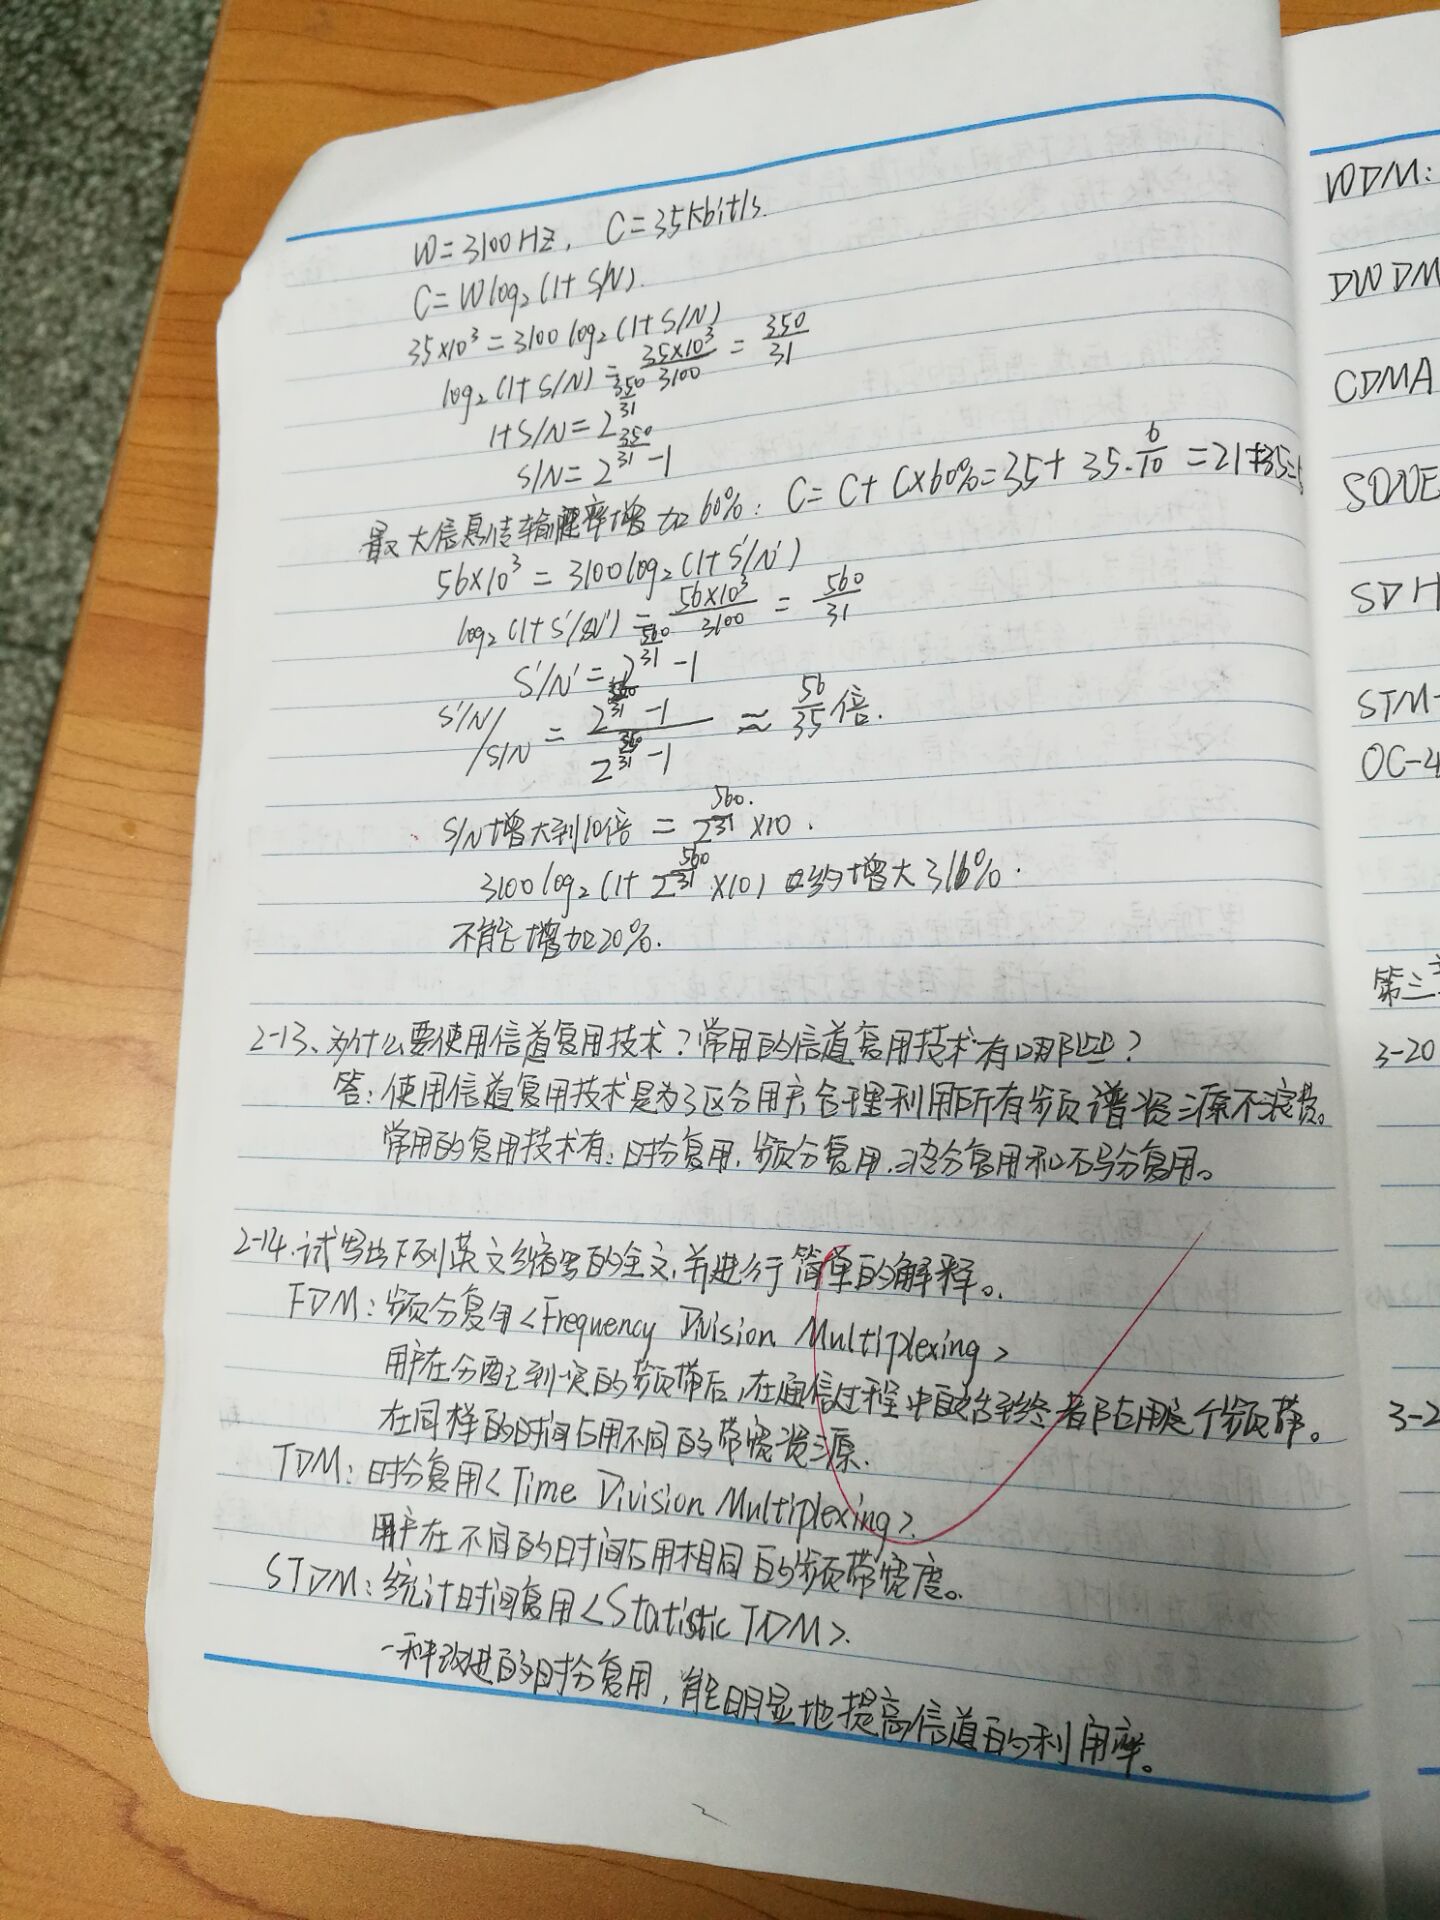 W=3100HZ, C=35kbit/s.
C=Wlog₂(1+S/N).
35×10³=3100log₂(1+S/N)
log₂(1+S/N)=35×10³/3100=350/31
1+S/N=2^(350/31)
S/N=2^(350/31)-1
最大信息传输速率增加60%: C=C+C×60%=35+35·6/10=21+35=
56×10³=3100log₂(1+S'/N')
log₂(1+S'/N')=56×10³/3100=560/31
S'/N'=2^(560/31)-1
S'/N'/S/N=2^(560/31)-1/2^(350/31)-1≈56/35倍.
S/N增大到10倍=2^(560/31)×10.
3100log₂(1+2^(560/31)×10)约增大316%.
不能增加20%.
2-13、为什么要使用信道复用技术?常用的信道复用技术有哪些?
答:使用信道复用技术是为了区分用户,合理利用所有频谱资源不浪费。
常用的复用技术有:时分复用,频分复用,波分复用和码分复用。
2-14.试写出下列英文缩写的全文,并进行简单的解释。
FDM:频分复用<Frequency Division Multiplexing>
用户在分配到一定的频带后,在通信过程中自始至终都占用这个频带。
在同样的时间占用不同的带宽资源.
TDM:时分复用<Time Division Multiplexing>.
用户在不同的时间占用相同的频带宽度。
STDM:统计时间复用<Statistic TDM>.
一种改进的时分复用,能明显地提高信道的利用率。
WDM:
DWDM
CDMA
SONE
SDH
STM-
OC-4
第三
3-20
3-2